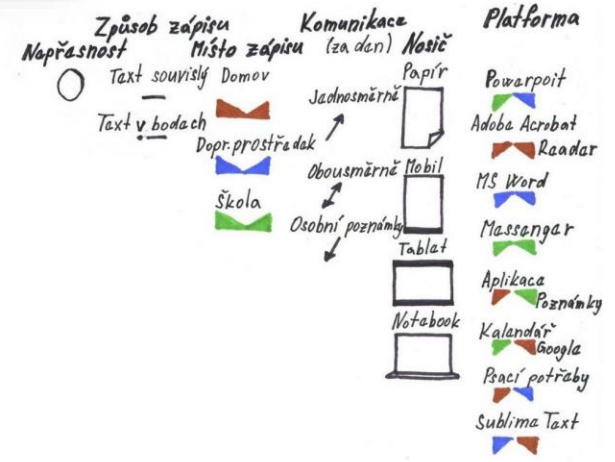 Způsob zápisu
Nepřesnost
Text souvislý
Text v bodech
Místo zápisu
Domov
Dopr. prostředek
Škola
Komunikace
(za den)
Jednosměrně
Obousměrně
Osobní poznámky
Nosič
Papír
Mobil
Tablet
Notebook
Platforma
Powerpoit
Adobe Acrobat
Reader
MS Word
Messenger
Aplikace
Poznámky
Kalendář
Google
Psací potřeby
Sublime Text